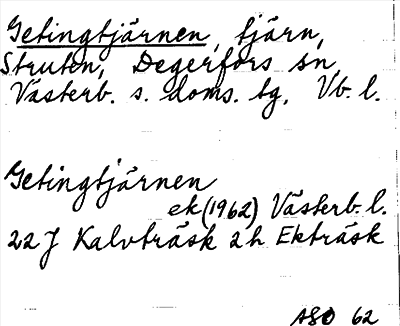 Getingtjärnen, tjärn,
Struten, Degerfors sn,
Västerb. s. doms. tg, Vb. l.
Getingtjärnen
ek (1962) Västerb. l.
22 J Kalvträsk 2h Ekträsk
ASO 62